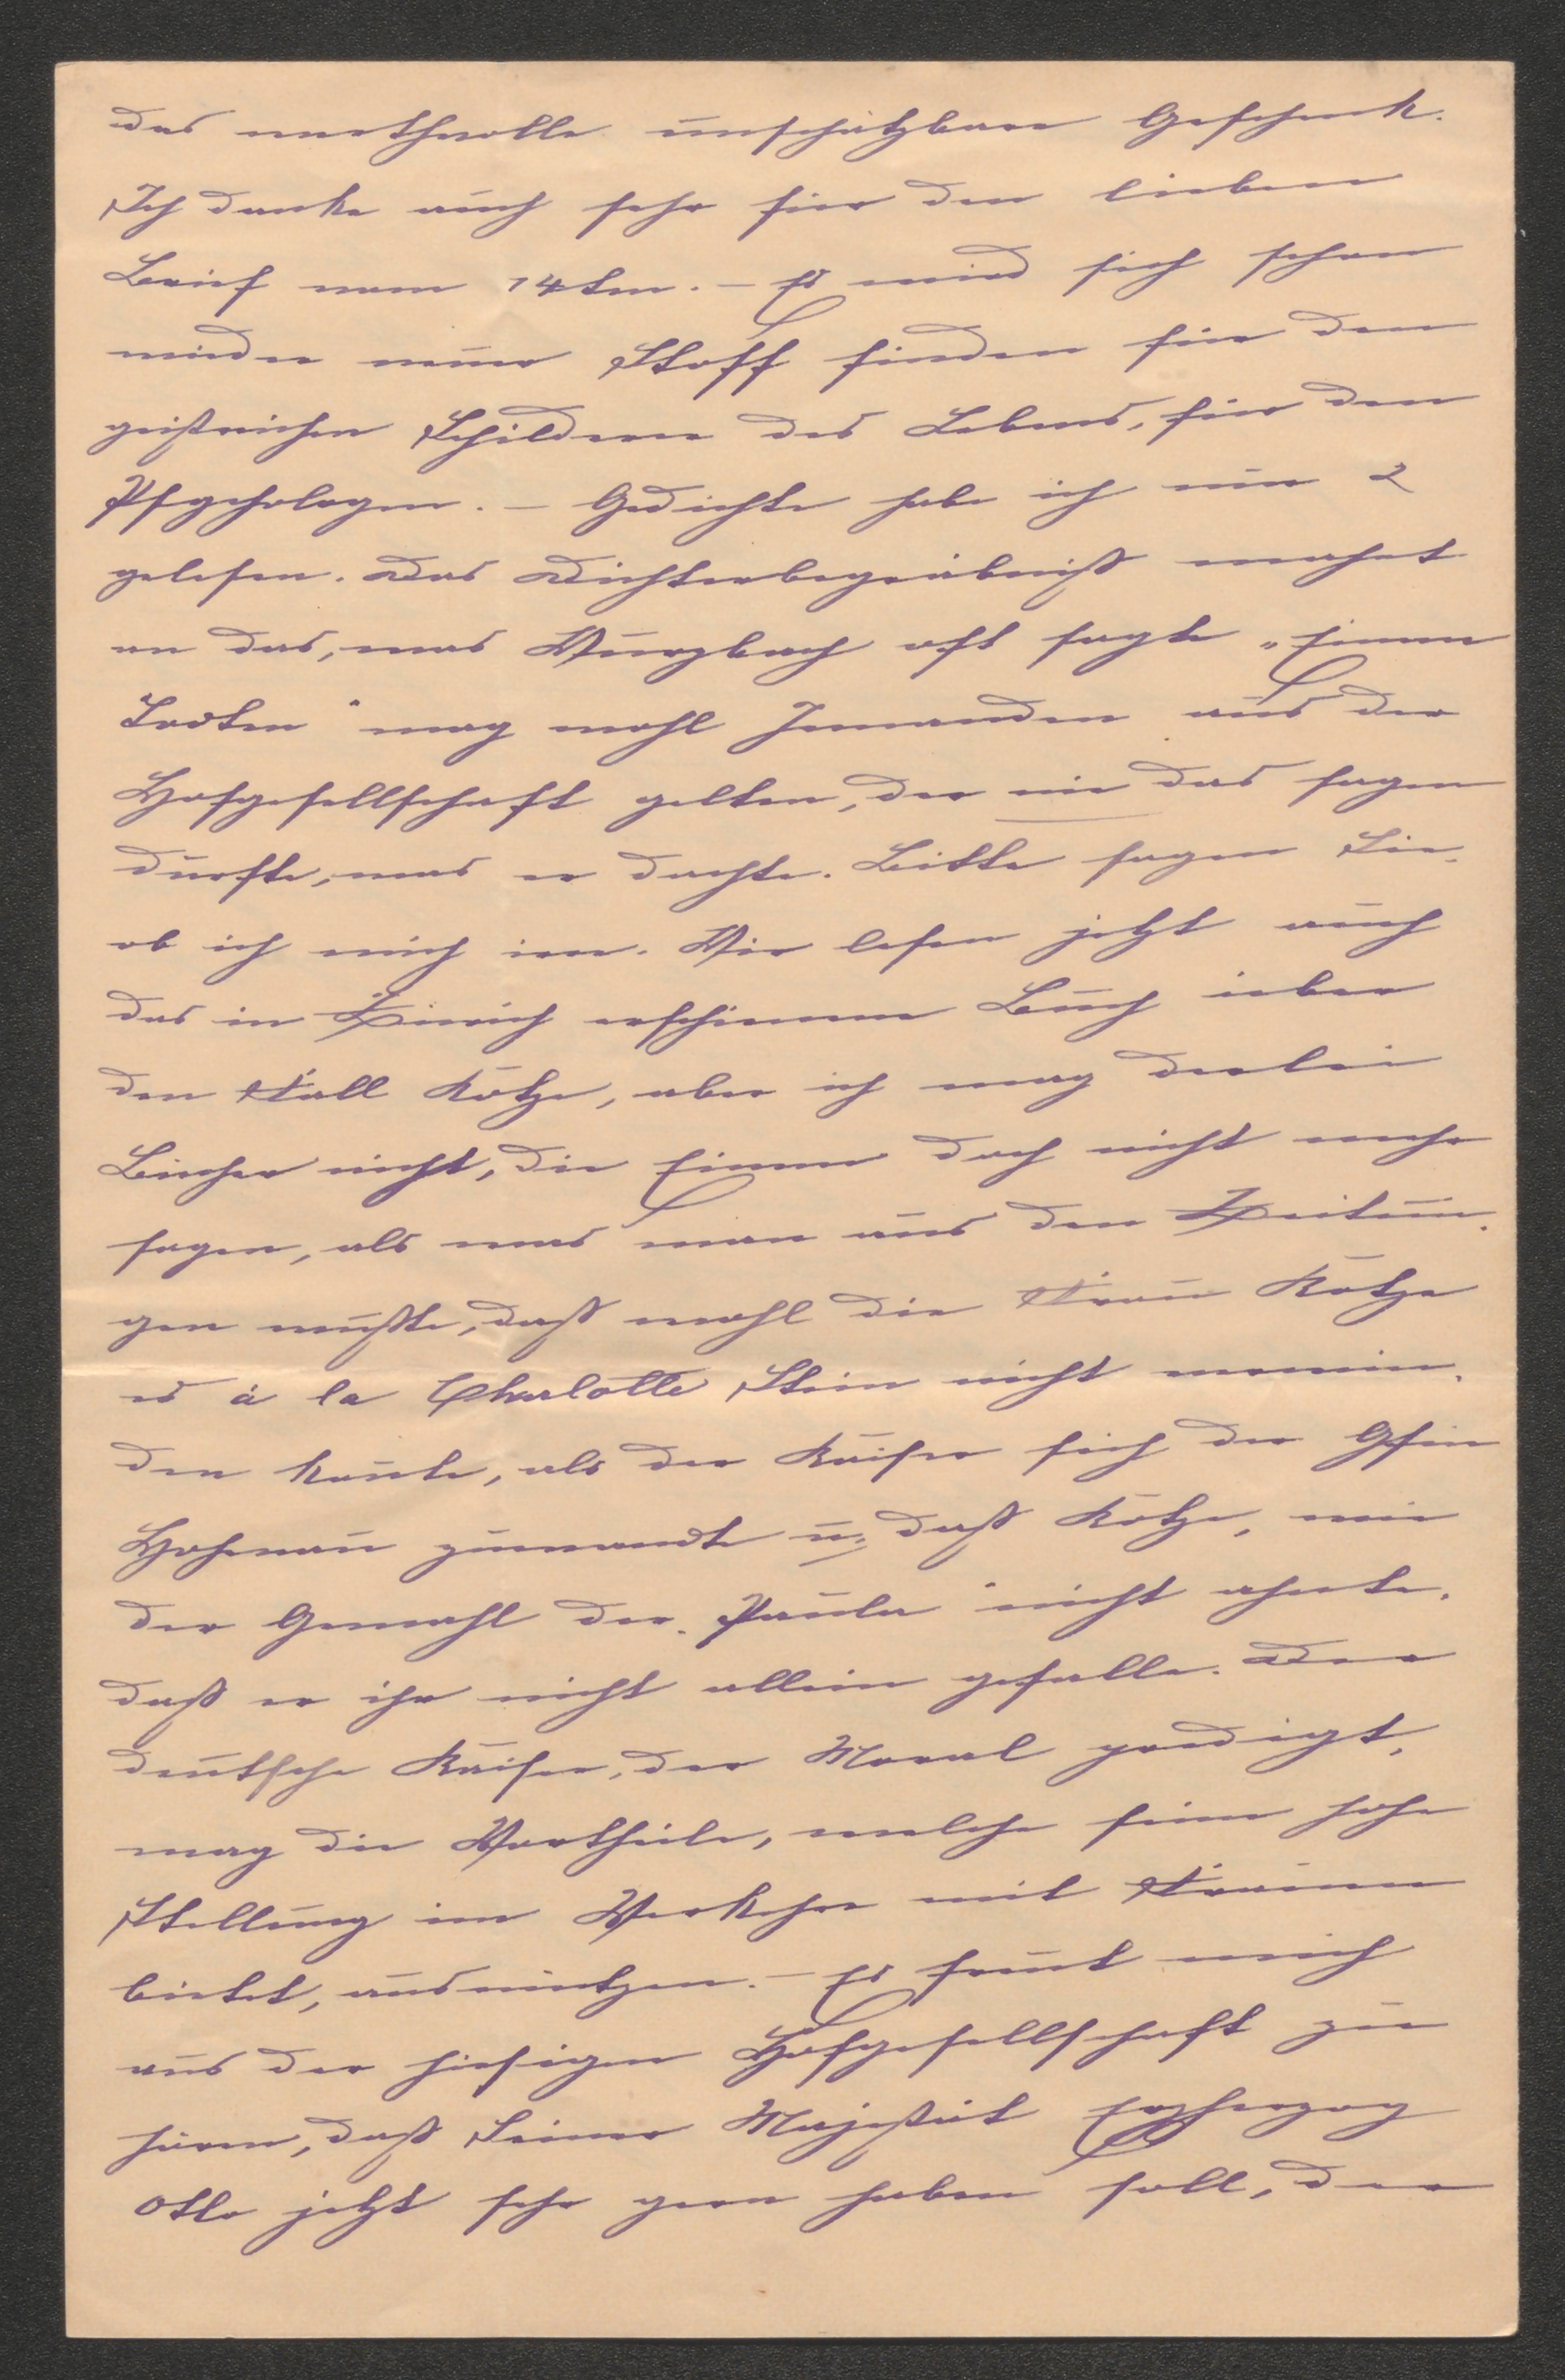 das werthvolle unschätzbare Geschenk.
Ich danke auch sehr für den lieben
Brief vom 14ten. – Es wird sich schon
wieder neuer Stoff finden für den
geistreichen Schilderer des Lebens, für den
Psychologen. – Gedichte habe ich nur 2
gelesen. Das Dichterbegräbniß mahnt
an das, was Wurzbach oft sagte „Einem
Todten" mag wohl Jemanden aus der
Hofgesellschaft gelten, der nie das sagen
durfte, was er dachte. Bitte sagen Sie,
ob ich mich irre. Wir lesen jetzt auch
das in Zürich erschienene Buch über
den Fall Kotze, aber ich mag derlei
Bücher nicht, die Einem doch nicht mehr
sagen, als was man aus den Zeitun-
gen wußte, daß wohl die Frau Kotze
es à la Charlotte Stein nicht verwin-
den konnte, als der Kaiser sich der Gfin
Hohenau zuwandte u. daß Kotze, wie
der Gemahl der „Paula" nicht ahnte,
daß er ihr nicht allein gefalle. Der
deutsche Kaiser, der Moral predigt,
mag die Vortheile, welche seine hohe
Stellung im Verkehre mit Frauen
bietet, ausnützen. – Es freut mich
aus der hiesigen Hofgesellschaft zu
hören, daß Seiner Majestät Erzherzog
Otto jetzt sehr gern haben soll, der